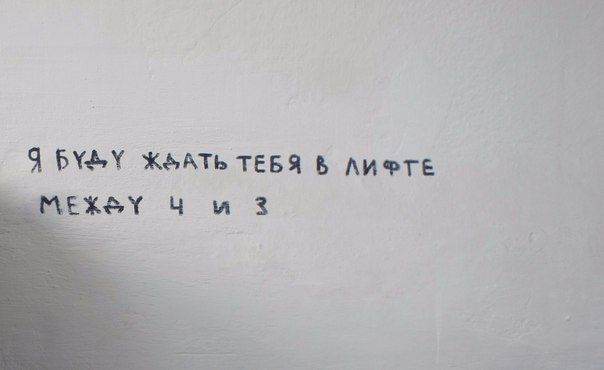 Я БУДУ ЖДАТЬ ТЕБЯ В ЛИФТЕ
МЕЖДУ 4 И 3